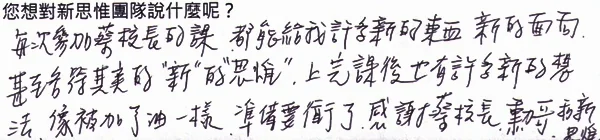 您想對新思惟團隊說什麼呢？
每次參加蔡校長的課 都能給我許多新的東西 新的面向.
甚至名符其實的"新"的"思惟". 上完課後也有許多新的想
法, 像被加了油一樣 準備要衝了. 感謝蔡校長,